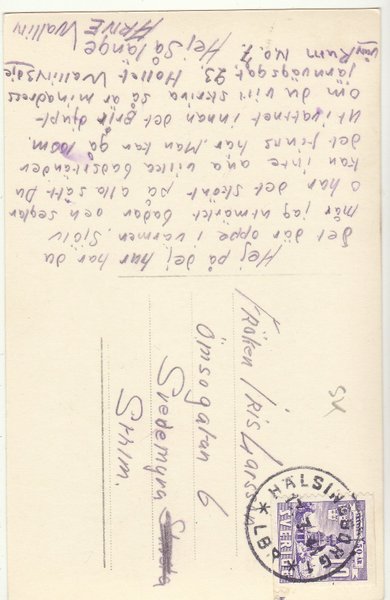 Hej på dej, hur har du
det där oppe i värmen. Själv
mår jag utmärkt badar och seglar
o har det skönt på alla sätt. Du
kan inte ana vilka badstränder
det finns här. Man kan gå 100m.
ut i vattnet innan det blir djupt.
Om du vill skriva så är min adress
Järnvägsgat. 23. Hotlet Wallinvaje
Rum No. 7.
Hej så länge
ARNE Wallin
Fröken Iris Larss
Omsogatan 6
Svedemyra
Sthlm.
SVERIGE
HÄLSINGBORG 1
LBR